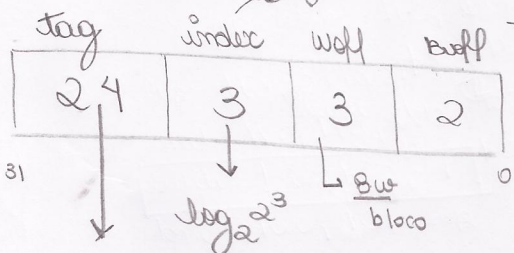 tag index woff Byoff
24 3 3 2
31 0
log₂ 2³
8w
bloco